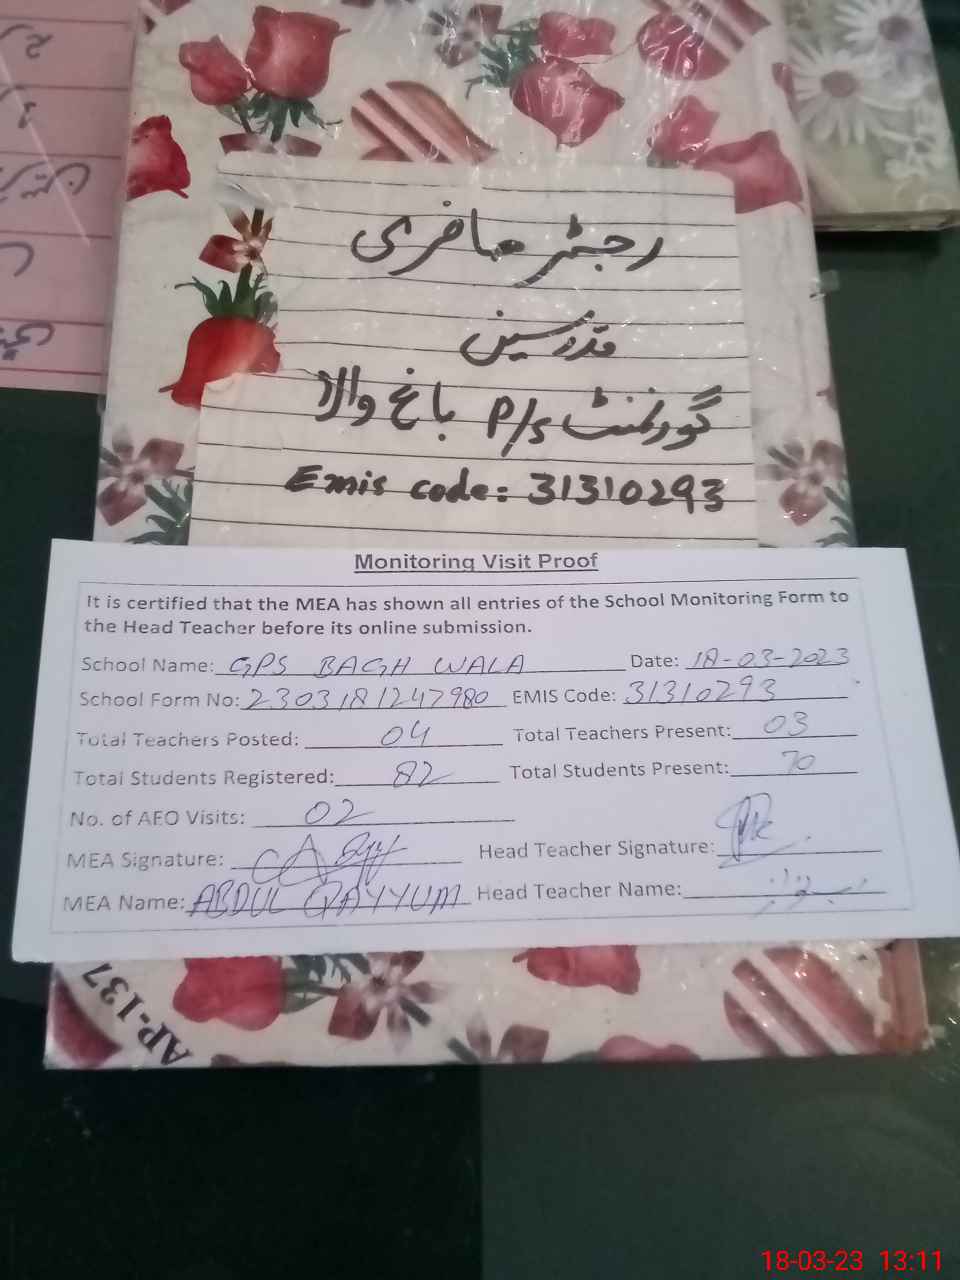 رجسٹر حاضری
مدرسین
گورنمنٹ P/S باغ والا
Emis code: 31310293
Monitoring Visit Proof
It is certified that the MEA has shown all entries of the School Monitoring Form to
the Head Teacher before its online submission.
School Name: GPS BAGH WALA Date: 18-03-2023
School Form No: 2303181247980 EMIS Code: 31310293
Total Teachers Posted: 04 Total Teachers Present: 03
Total Students Registered: 82 Total Students Present: 70
No. of AEO Visits: 02
MEA Signature: Head Teacher Signature:
MEA Name: ABDUL QAYYUM Head Teacher Name:
AP-137
18-03-23 13:11